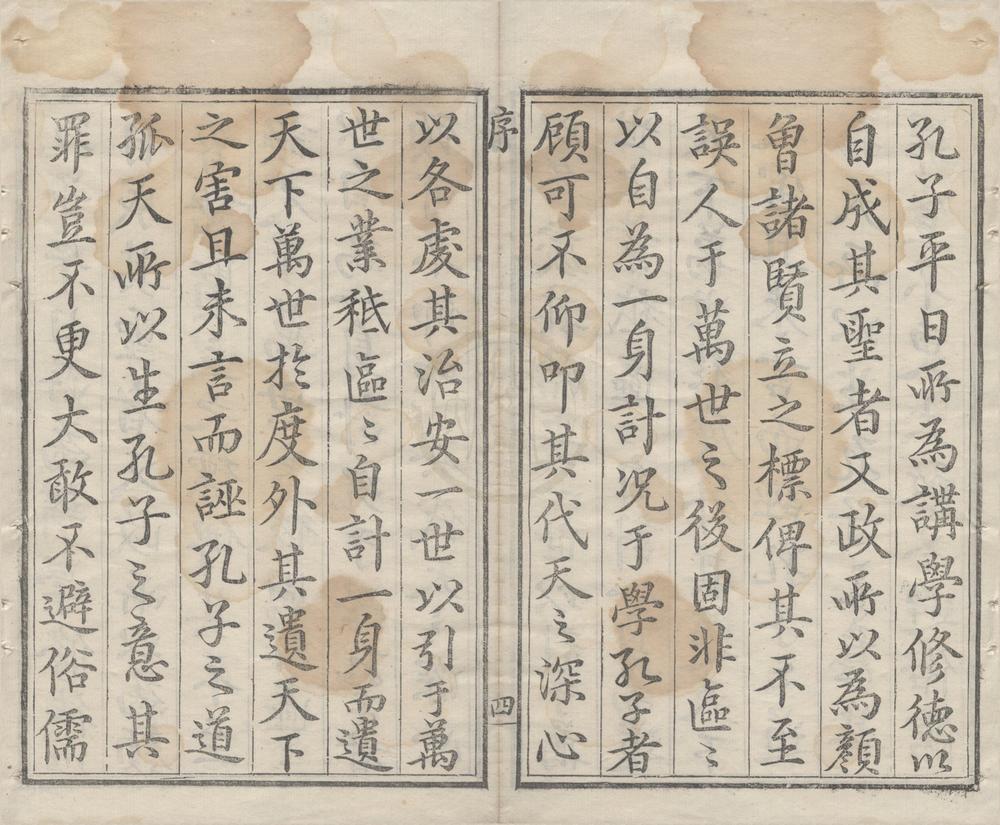 孔子平日所為講學修德以
自成其聖者又政所以為顏
曾諸賢立之標俾其不至
誤人于萬世之後固非區〻
以自為一身計况于學孔子者
顧可不仰叩其代天之深心
序
四
以各處其治安一世以引于萬
世之業秪區〻自計一身而遺
天下萬世於度外其遺天下
之害且未言而誣孔子之道
孤天所以生孔子之意其
罪豈不更大敢不避俗儒